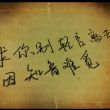 求你别轻言离去
因知音难觅